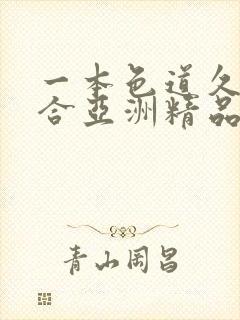 一本色道久
合亞洲精品
青山岡昌